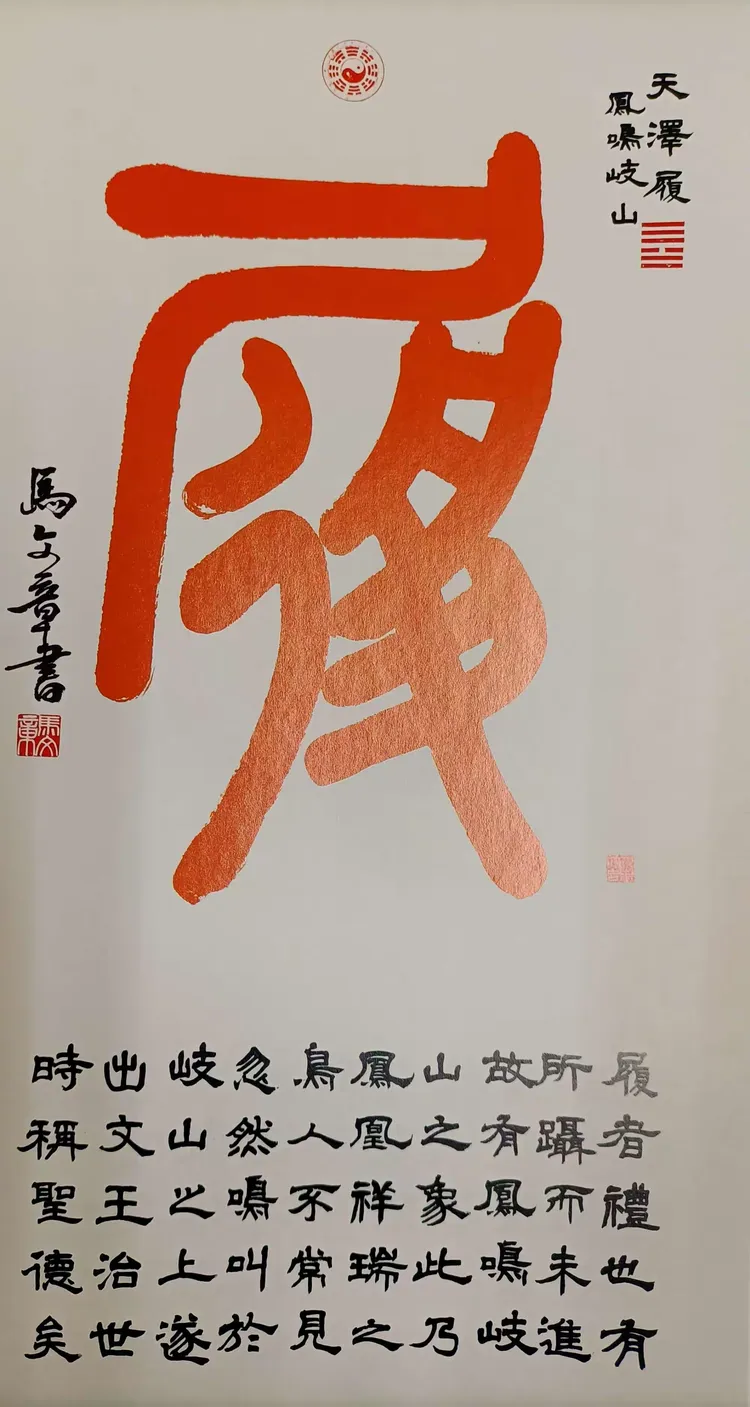 天澤履
鳳鳴岐山
履
履者禮也有
所躡而未進
故有鳳鳴岐
山之象此乃
鳳凰祥瑞之
鳥人不常見
忽然鳴叫於
岐山之上遂
出文王治世
時稱聖德矣
馬文章書
馬文章